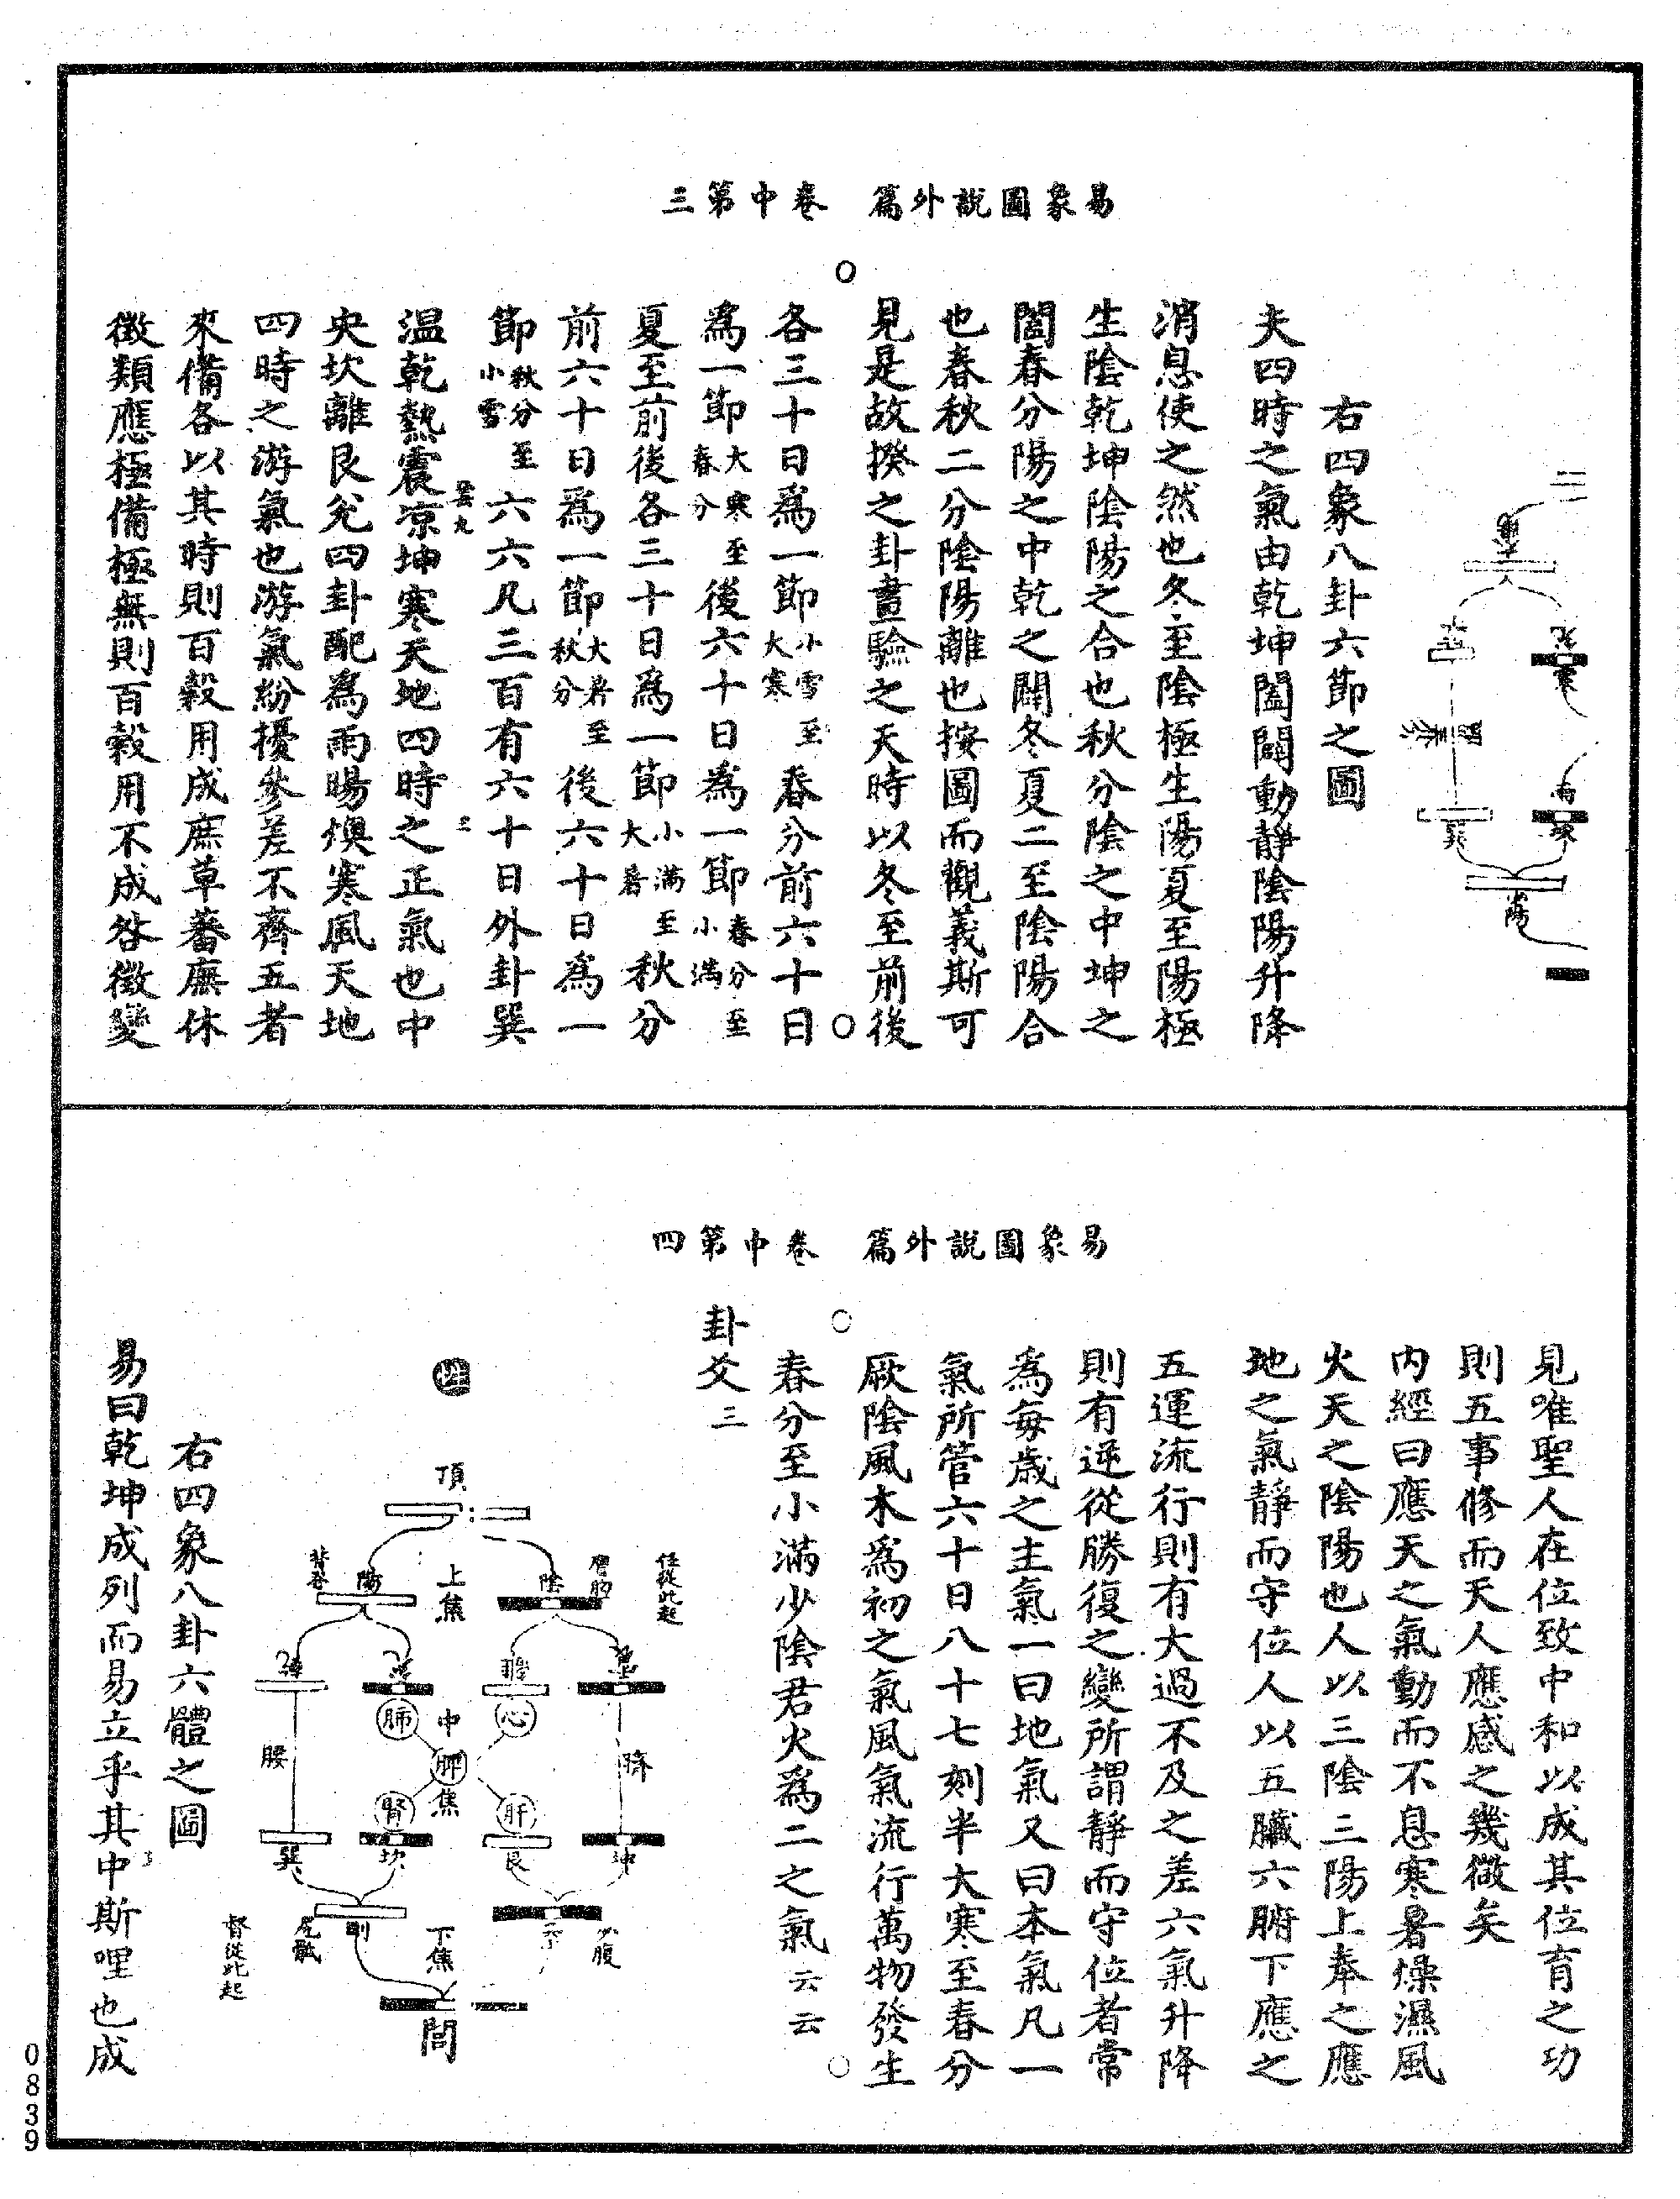 易象圖說外篇　卷中第三
右四象八卦六節之圖
夫四時之氣由乾坤闔闢動靜陰陽升降
消息使之然也冬至陰極生陽夏至陽極
生陰乾坤陰陽之合也秋分陰之中坤之
闔春分陽之中乾之闢冬夏二至陰陽合
也春秋二分陰陽離也按圖而觀義斯可
見是故揆之卦畫驗之天時以冬至前後
各三十日爲一節小雪至大寒春分前六十日
爲一節大寒至春分後六十日爲一節春分至小滿
夏至前後各三十日爲一節小滿至大暑秋分
前六十日爲一節大暑至秋分後六十日爲一
節秋分至小雪六六凡三百有六十日外卦巽
温乾熱震凉坤寒天地四時之正氣也中
央坎離艮兌四卦配爲雨暘燠寒風天地
四時之游氣也游氣紛擾參差不齊五者
來備各以其時則百穀用成庶草蕃廡休
徵類應極備極無則百穀用不成咎徵變
雲九
三
易象圖說外篇　卷中第四
見唯聖人在位致中和以成其位育之功
則五事修而天人應感之幾微矣
内經曰應天之氣動而不息寒暑燥濕風
火天之陰陽也人以三陰三陽上奉之應
地之氣靜而守位人以五臟六腑下應之
五運流行則有大過不及之差六氣升降
則有逆從勝復之變所謂靜而守位者常
爲每歲之主氣一曰地氣又曰本氣凡一
氣所管六十日八十七刻半大寒至春分
厥陰風木爲初之氣風氣流行萬物發生
春分至小滿少陰君火爲二之氣云云
卦爻三
頂
任從此起
膺胸
陰
上焦
陽
背脊
心
中焦
肺
脾
臍
腰
肝
腎
坤
艮
坎
巽
少腹
下焦
剛
尾骶
督從此起
右四象八卦六體之圖
易曰乾坤成列而易立乎其中斯哩也成
0839